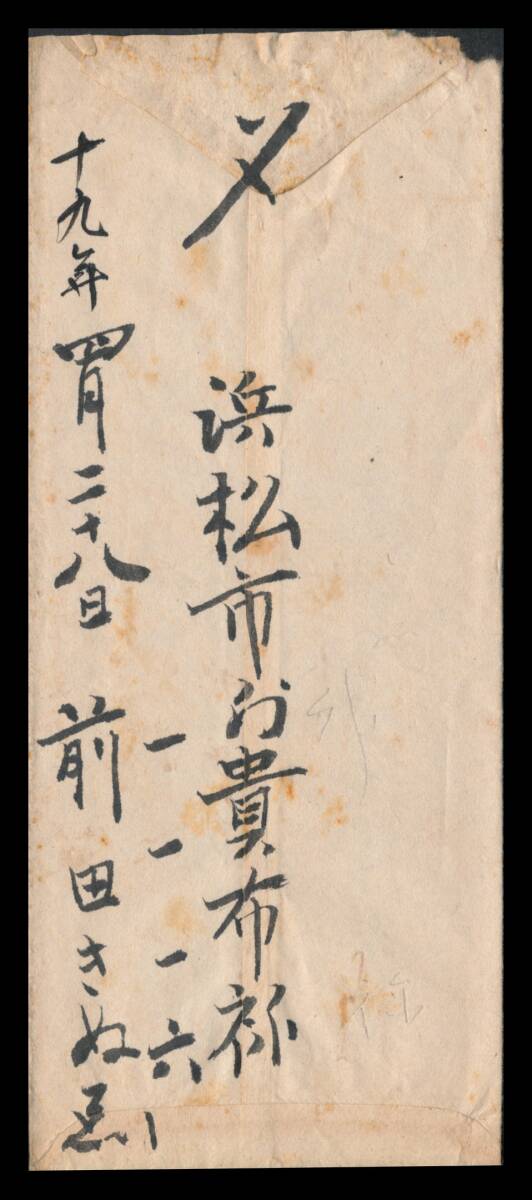 〆
浜松市外貴布祢
一一一六
十九年四月二十八日 前田きぬゑ